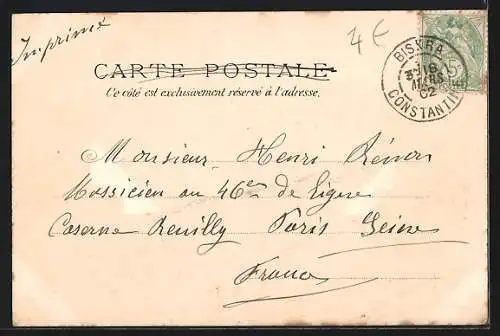 Imprimé
4€
BISKRA
18
MARS
02
CONSTANTINE
5
CARTE POSTALE
Ce côté est exclusivement réservé à l'adresse.
Monsieur Henri
au 46e de ligne
Caserne Reuilly Paris Seine
France